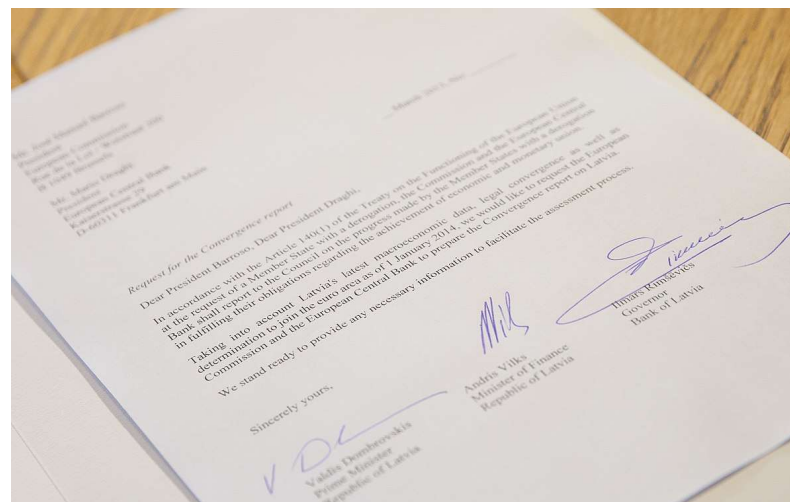 March 2013, No.
Mr. José Manuel Barroso
President
European Commission
Rue de la Loi / Wetstraat 200
B-1049 Brussels
Mr. Mario Draghi
President
European Central Bank
Kaiserstrasse 29
D-60311 Frankfurt am Main
Request for the Convergence report
Dear President Barroso, Dear President Draghi,
In accordance with the Article 140(1) of the Treaty on the Functioning of the European Union
at the request of a Member State with a derogation, the Commission and the European Central
Bank shall report to the Council on the progress made by the Member States with a derogation
in fulfilling their obligations regarding the achievement of economic and monetary union.
Taking into account Latvia's latest macroeconomic data, legal convergence as well as
determination to join the euro area as of 1 January 2014, we would like to request the European
Commission and the European Central Bank to prepare the Convergence report on Latvia.
We stand ready to provide any necessary information to facilitate the assessment process.
Sincerely yours,
Valdis Dombrovskis
Prime Minister
Republic of Latvia
Andris Vilks
Minister of Finance
Republic of Latvia
Ilmārs Rimšēvičs
Governor
Bank of Latvia